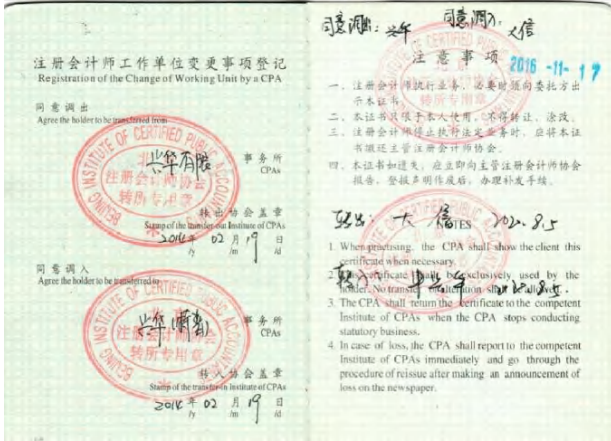 注册会计师工作单位变更事项登记
Registration of the Change of Working Unit by a CPA
同意调出
Agree the holder to be transferred from
兴华有限
事务所
CPAs
BEIJING INSTITUTE OF CERTIFIED PUBLIC ACCOUNTANTS
北京
注册会计师协会
转所专用章
转出协会盖章
Stamp of the transfer-out Institute of CPAs
2014年02月19日
/y /m /d
同意调入
Agree the holder to be transferred to
兴华
事务所
CPAs
BEIJING INSTITUTE OF CERTIFIED PUBLIC ACCOUNTANTS
注册会计师协会
转所专用章
转入协会盖章
Stamp of the transfer-in Institute of CPAs
2014年02月19日
/y /m /d
同意调出: 兴华
同意调入: 大信
注意事项
2016 -11- 17
一、注册会计师执行业务,必要时须向委托方出
示本证书。
二、本证书只限于本人使用,不得转让、涂改。
三、注册会计师停止执行法定业务时,应将本证
书缴还主管注册会计师协会。
四、本证书如遗失,应立即向主管注册会计师协会
报告,登报声明作废后,办理补发手续。
转所专用章
转出: 大信 2020.8.5
NOTES
1. When practising, the CPA shall show the client this
certificate when necessary.
2. This certificate shall be exclusively used by the
holder. No transfer or alteration shall be allowed.
转入: 中兴华 2020.8.5.
3. The CPA shall return the certificate to the competent
Institute of CPAs when the CPA stops conducting
statutory business.
4. In case of loss, the CPA shall report to the competent
Institute of CPAs immediately and go through the
procedure of reissue after making an announcement of
loss on the newspaper.